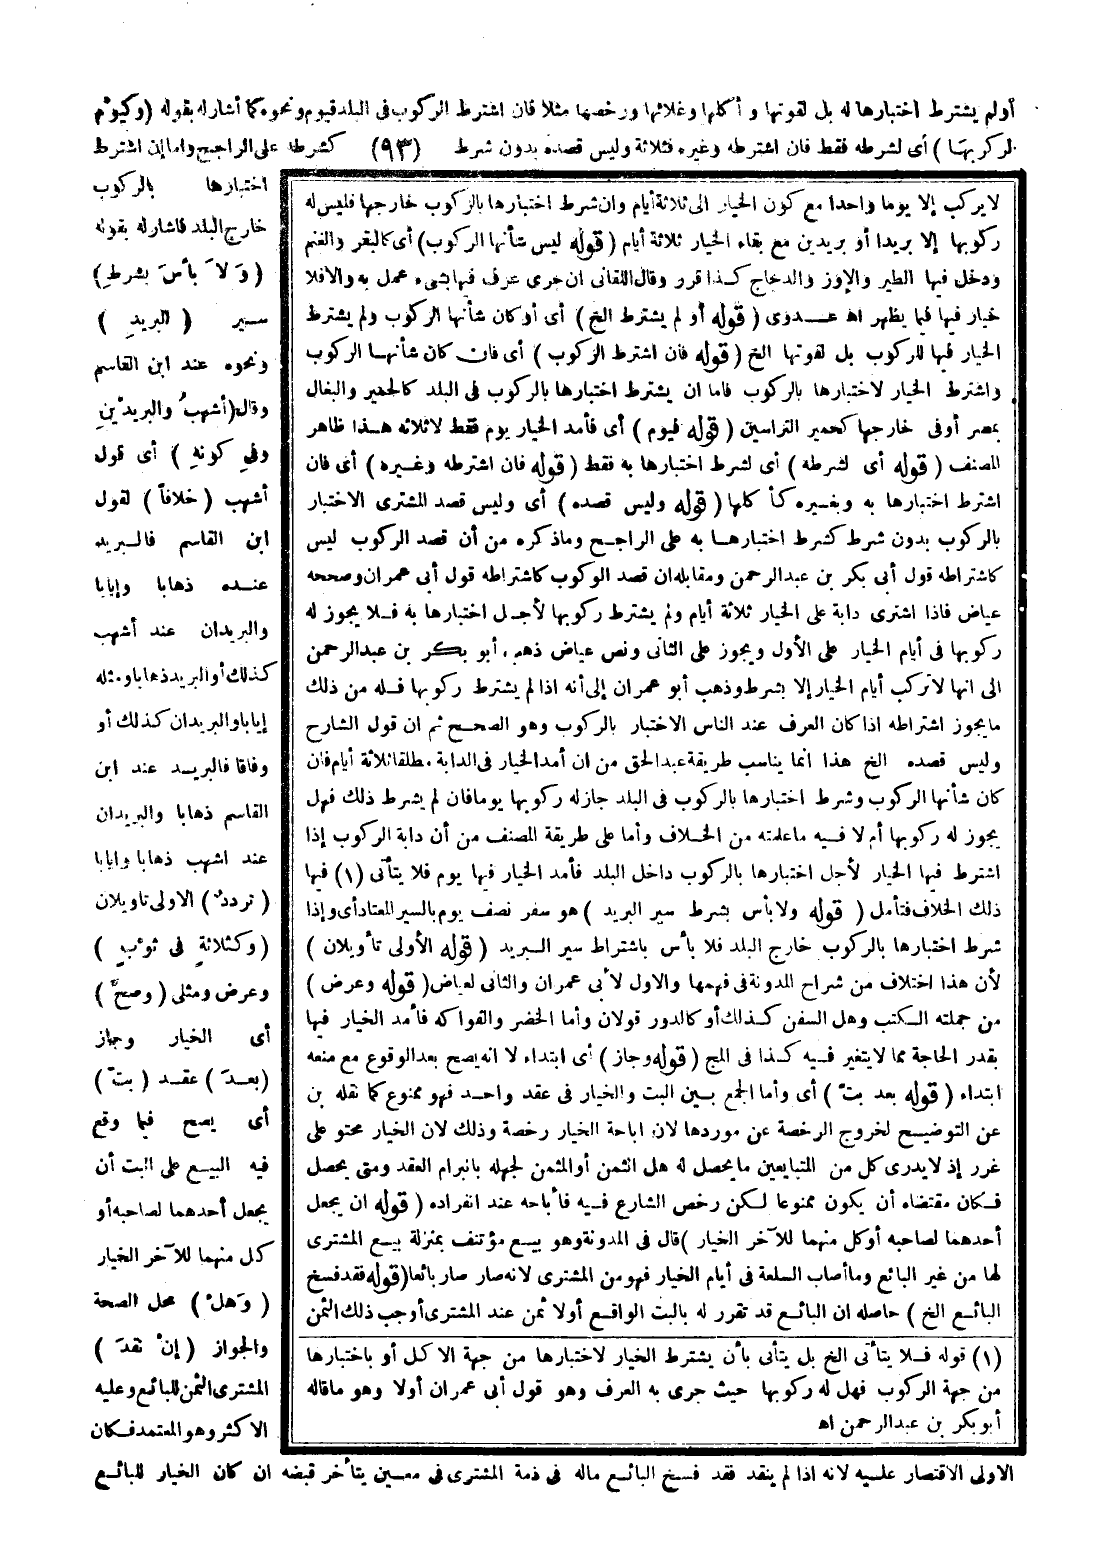 أولم يشترط اختبارها له بل لقوتها و أكلها وغلائها ورخصها مثلا فان اشترط الركوب فى البلد فيوم ونحوه كما أشار له بقوله (وكيوم
لركوبها) أى لشرطه فقط فان اشترطه وغيره فثلاثة وليس قصده بدون شرط (٩٣) كشرطه على الراجح وأما إن اشترط
اختبارها بالركوب
خارج البلد فأشار له بقوله
(وَلاَ بأسَ بشرطِ)
سير (البريدِ)
ونحوه عند ابن القاسم
وقال (أشهبُ والبريدْينِ
وفى كونهِ) أى قول
أشهب (خلافاً) لقول
ابن القاسم فالبريد
عنده ذهابا وإيابا
والبريدان عند أشهب
كذلك أو البريد ذهابا ومثله
إيابا والبريدان كذلك أو
وفاقا فالبريد عند ابن
القاسم ذهابا والبريدان
عند اشهب ذهابا وايابا
(ترددٌ) الاولى تاويلان
(وكثلاثةٍ فى ثوبٍ)
وعرض ومثلى (وصحَّ)
أى الخيار وجاز
(بعدَ) عقد (بتّ)
أى يصح فيما وقع
فيه البيع على البت أن
يجعل أحدهما لصاحبه أو
كل منهما للآخر الخيار
(وَهلْ) محل الصحة
والجواز (إنْ نقدَ)
المشترى الثمن للبائع وعليه
الاكثر وهو المعتمد فكان
لايركب إلا يوما واحدا مع كون الخيار الى ثلاثة أيام وان شرط اختبارها بالركوب خارجها فليس له
ركوبها إلا بريدا أو بريدين مع بقاء الخيار ثلاثة أيام (قوله ليس شأنها الركوب) أى كالبقر والغنم
ودخل فيها الطير والإوز والدجاج كذا قرر وقال اللقانى ان جرى عرف فيها بشىء عمل به والافلا
خيار فيها فيما يظهر اه عدوى (قوله أو لم يشترط الخ) أى أو كان شأنها الركوب ولم يشترط
الخيار فيها للركوب بل لقوتها الخ (قوله فان اشترط الركوب) أى فان كان شأنها الركوب
واشترط الخيار لاختبارها بالركوب فاما ان يشترط اختبارها بالركوب فى البلد كالحمير والبغال
بمصر أوفى خارجها كحمير التراسين (قوله فيوم) أى فأمد الخيار يوم فقط لاثلاثه هذا ظاهر
المصنف (قوله أى لشرطه) أى لشرط اختبارها به فقط (قوله فان اشترطه وغيره) أى فان
اشترط اختبارها به وبغيره كأ كلها (قوله وليس قصده) أى وليس قصد المشترى الاختبار
بالركوب بدون شرط كشرط اختبارها به على الراجح وماذكره من أن قصد الركوب ليس
كاشتراطه قول أبى بكر بن عبدالرحمن ومقابله ان قصد الركوب كاشتراطه قول أبى عمران وصححه
عياض فاذا اشترى دابة على الخيار ثلاثة أيام ولم يشترط ركوبها لأجل اختبارها به فلا يجوز له
ركوبها فى أيام الخيار على الأول ويجوز على الثانى ونص عياض ذهب أبو بكر بن عبدالرحمن
الى انها لاتركب أيام الخيار إلا بشرط وذهب أبو عمران إلى أنه اذا لم يشترط ركوبها فله من ذلك
مايجوز اشتراطه اذا كان العرف عند الناس الاختبار بالركوب وهو الصحيح ثم ان قول الشارح
وليس قصده الخ هذا انما يناسب طريقة عبد الحق من ان أمد الخيار فى الدابة مطلقا ثلاثة أيام فان
كان شأنها الركوب وشرط اختبارها بالركوب فى البلد جاز له ركوبها يوما فان لم يشرط ذلك فهل
يجوز له ركوبها أم لا فيه ماعلمته من الخلاف وأما على طريقة المصنف من أن دابة الركوب إذا
اشترط فيها الخيار لأجل اختبارها بالركوب داخل البلد فأمد الخيار فيها يوم فلا يتأتى (١) فيها
ذلك الخلاف فتأمل (قوله ولابأس بشرط سير البريد) هو سفر نصف يوم بالسير المعتاد أى وإذا
شرط اختبارها بالركوب خارج البلد فلا بأس باشتراط سير البريد (قوله الأولى تأويلان)
لأن هذا اختلاف من شراح المدونة فى فهمها والاول لأبى عمران والثانى لعياض (قوله وعرض)
من جملته الكتب وهل السفن كذلك أو كالدور قولان وأما الخضر والفواكه فأمد الخيار فيها
بقدر الحاجة مما لايتغير فيه كذا فى المج (قوله وجاز) أى ابتداء لا انه يصح بعد الوقوع مع منعه
ابتداء (قوله بعد بتّ) أى وأما الجمع بين البت والخيار فى عقد واحد فهو ممنوع كما نقله بن
عن التوضيح لخروج الرخصة عن موردها لان اباحة الخيار رخصة وذلك لان الخيار محتو على
غرر إذ لايدرى كل من المتبايعين مايحصل له هل الثمن أو المثمن لجهله بانبرام العقد ومتى يحصل
فكان مقتضاه أن يكون ممنوعا لكن رخص الشارع فيه فأباحه عند انفراده (قوله ان يجعل
أحدهما لصاحبه أو كل منهما للآخر الخيار) قال فى المدونة وهو بيع مؤتنف بمنزلة بيع المشترى
لها من غير البائع وما أصاب السلعة فى أيام الخيار فهو من المشترى لانه صار صار بائعا (قوله فقد فسخ
البائع الخ) حاصله ان البائع قد تقرر له بالبت الواقع أولا ثمن عند المشترى أوجب ذلك الثمن
(١) قوله فلا يتأتى الخ بل يتأتى بأن يشترط الخيار لاختبارها من جهة الاكل أو باختبارها
من جهة الركوب فهل له ركوبها حيث جرى به العرف وهو قول أبى عمران أولا وهو ماقاله
أبو بكر بن عبدالرحمن اه
الاولى الاقتصار عليه لانه اذا لم ينقد فقد فسخ البائع ماله فى ذمة المشترى فى معين يتأخر قبضه ان كان الخيار للبائع